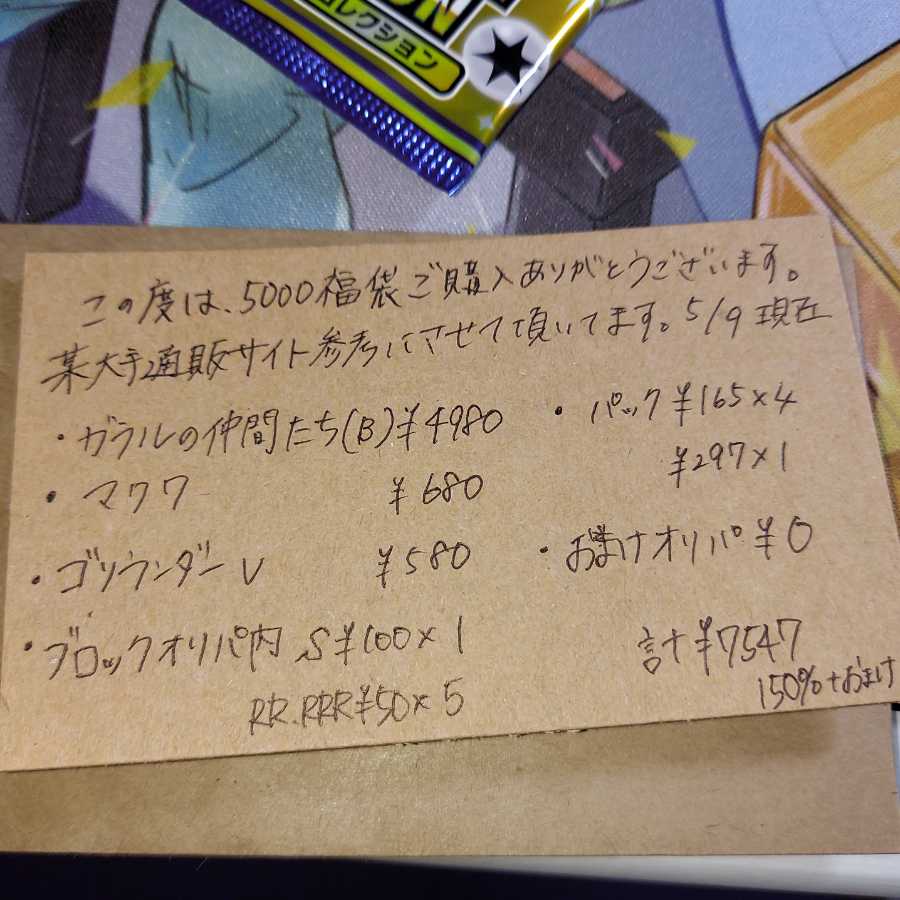 コレクション
この度は、5000福袋ご購入ありがとうございます。
某大手通販サイト参考にさせて頂いてます。5/9現在
・ガラルの仲間たち(B)¥4980
・マクワ ¥680
・ゴリランダーV ¥580
・ブロックオリパ内 S¥100×1
RR.RRR¥50×5
・パック¥165×4
¥297×1
・おまけオリパ¥0
計¥7547
150%+おまけ